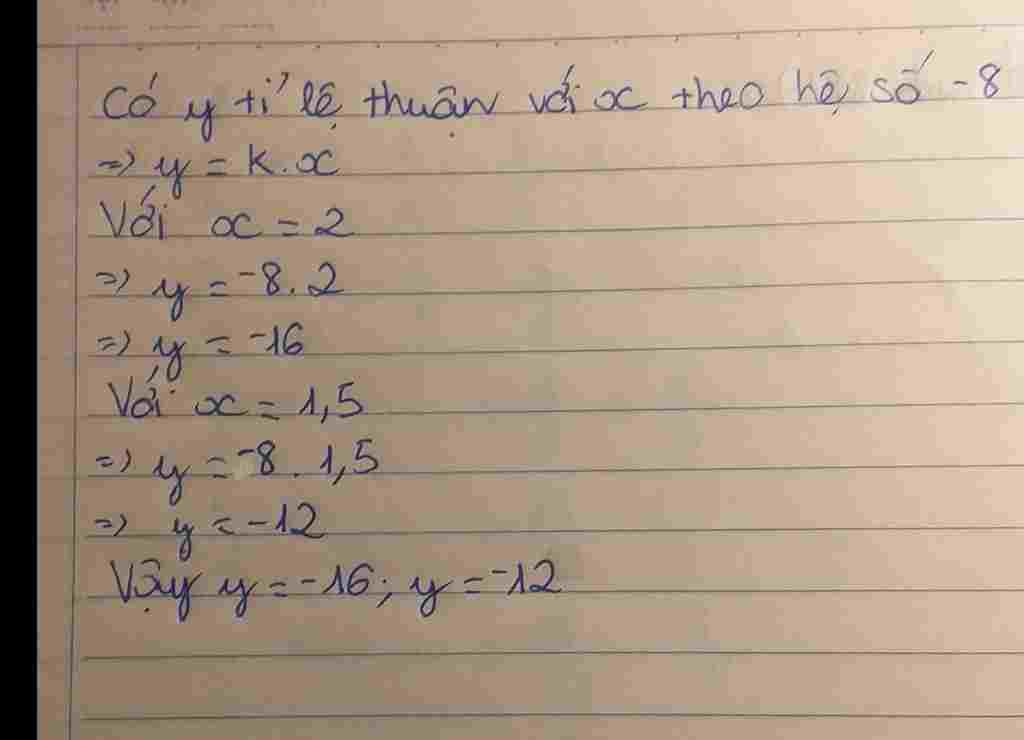 Có y tỉ lệ thuận với x theo hệ số -8
=> y = k.x
Với x = 2
=> y = -8.2
=> y = -16
Với x = 1,5
=> y = -8. 1,5
=> y = -12
Vậy y = -16; y = -12